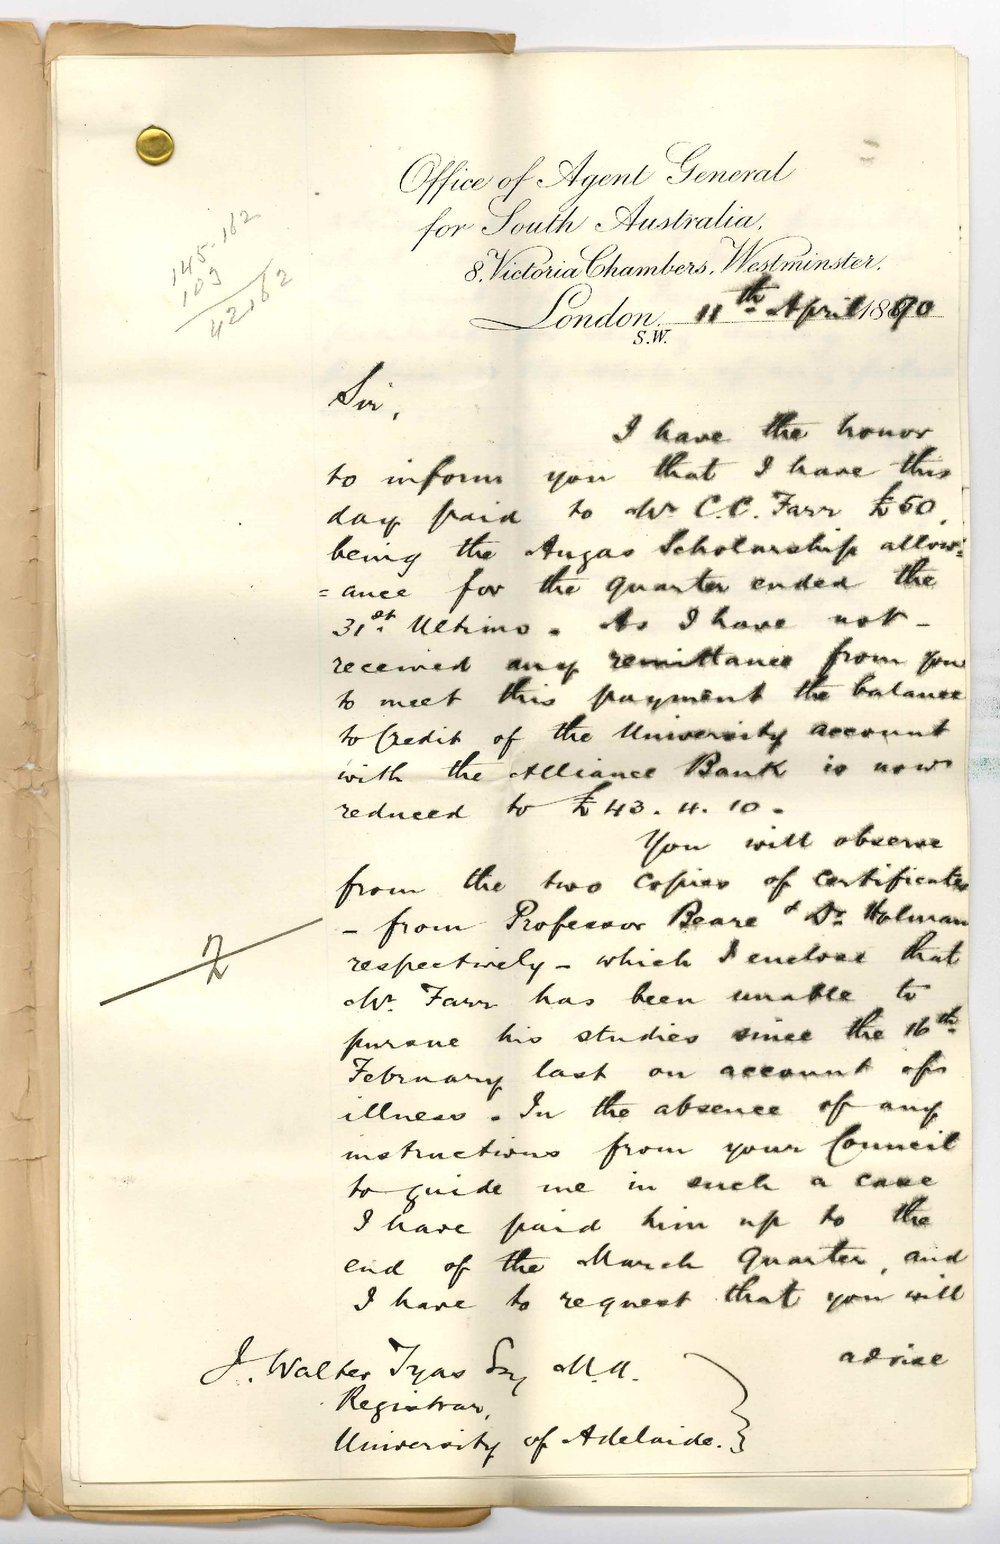 Office of Agent General
for South Australia,
8, Victoria Chambers, Westminster,
London, 11th April 1890
S.W.
145.162
103
42.162
Sir,
I have the honor
to inform you that I have this
day paid to Mr C.C. Farr £50,
being the Angas Scholarship allow=
=ance for the quarter ended the
31st Ultimo. As I have not
received any remittance from you
to meet this payment the balance
to Credit of the University account
with the Alliance Bank is now
reduced to £43. 4. 10.
You will observe
from the two copies of certificates
- from Professor Beare & Dr Holman
respectively - which I enclose that
Mr. Farr has been unable to
pursue his studies since the 16th
February last on account of
illness. In the absence of any
instructions from your Council
to guide me in such a case
I have paid him up to the
end of the March quarter, and
I have to request that you will
advise
J. Walter Tyas Esq M.A.
Registrar,
University of Adelaide.